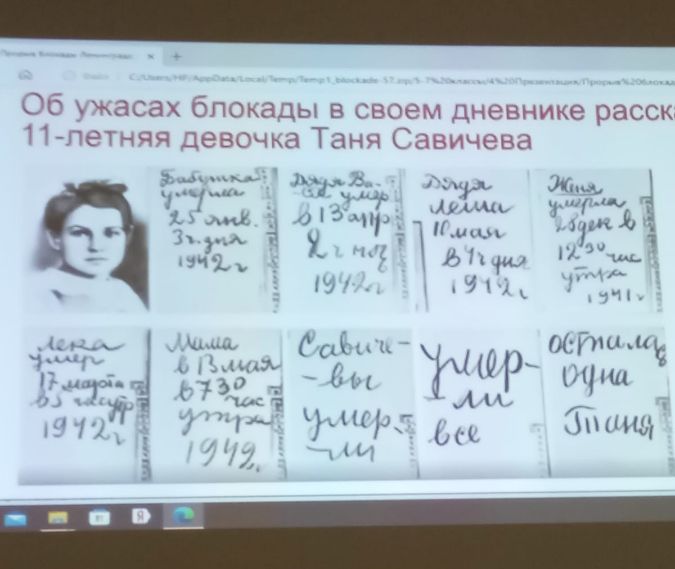 Прорыв блокады Ленинграда
Файл
C:/Users/HP/AppData/Local/Temp/Temp1_blockade-57.zip/5-7%20классы/4%20Презентация/Прорыв%20блокад
Об ужасах блокады в своем дневнике расска
11-летняя девочка Таня Савичева
Бабушка
умерла
25 янв.
3ч. дня
1942г
Дядя Ва-
ся умер
в 13 апр
2ч ноч
1942г
Дядя
Леша
10 мая
в 4ч дня
1942г
Женя
умерла
28 дек в
12 30 час
утра
1941г
Лека
умер
17 марта
в 5 час утр
1942г
Мама
в 13 мая
в 7 30
час
утра
1942г
Савиче-
-вы
умер-
-ли
умер-
-ли
все
осталас
одна
Таня